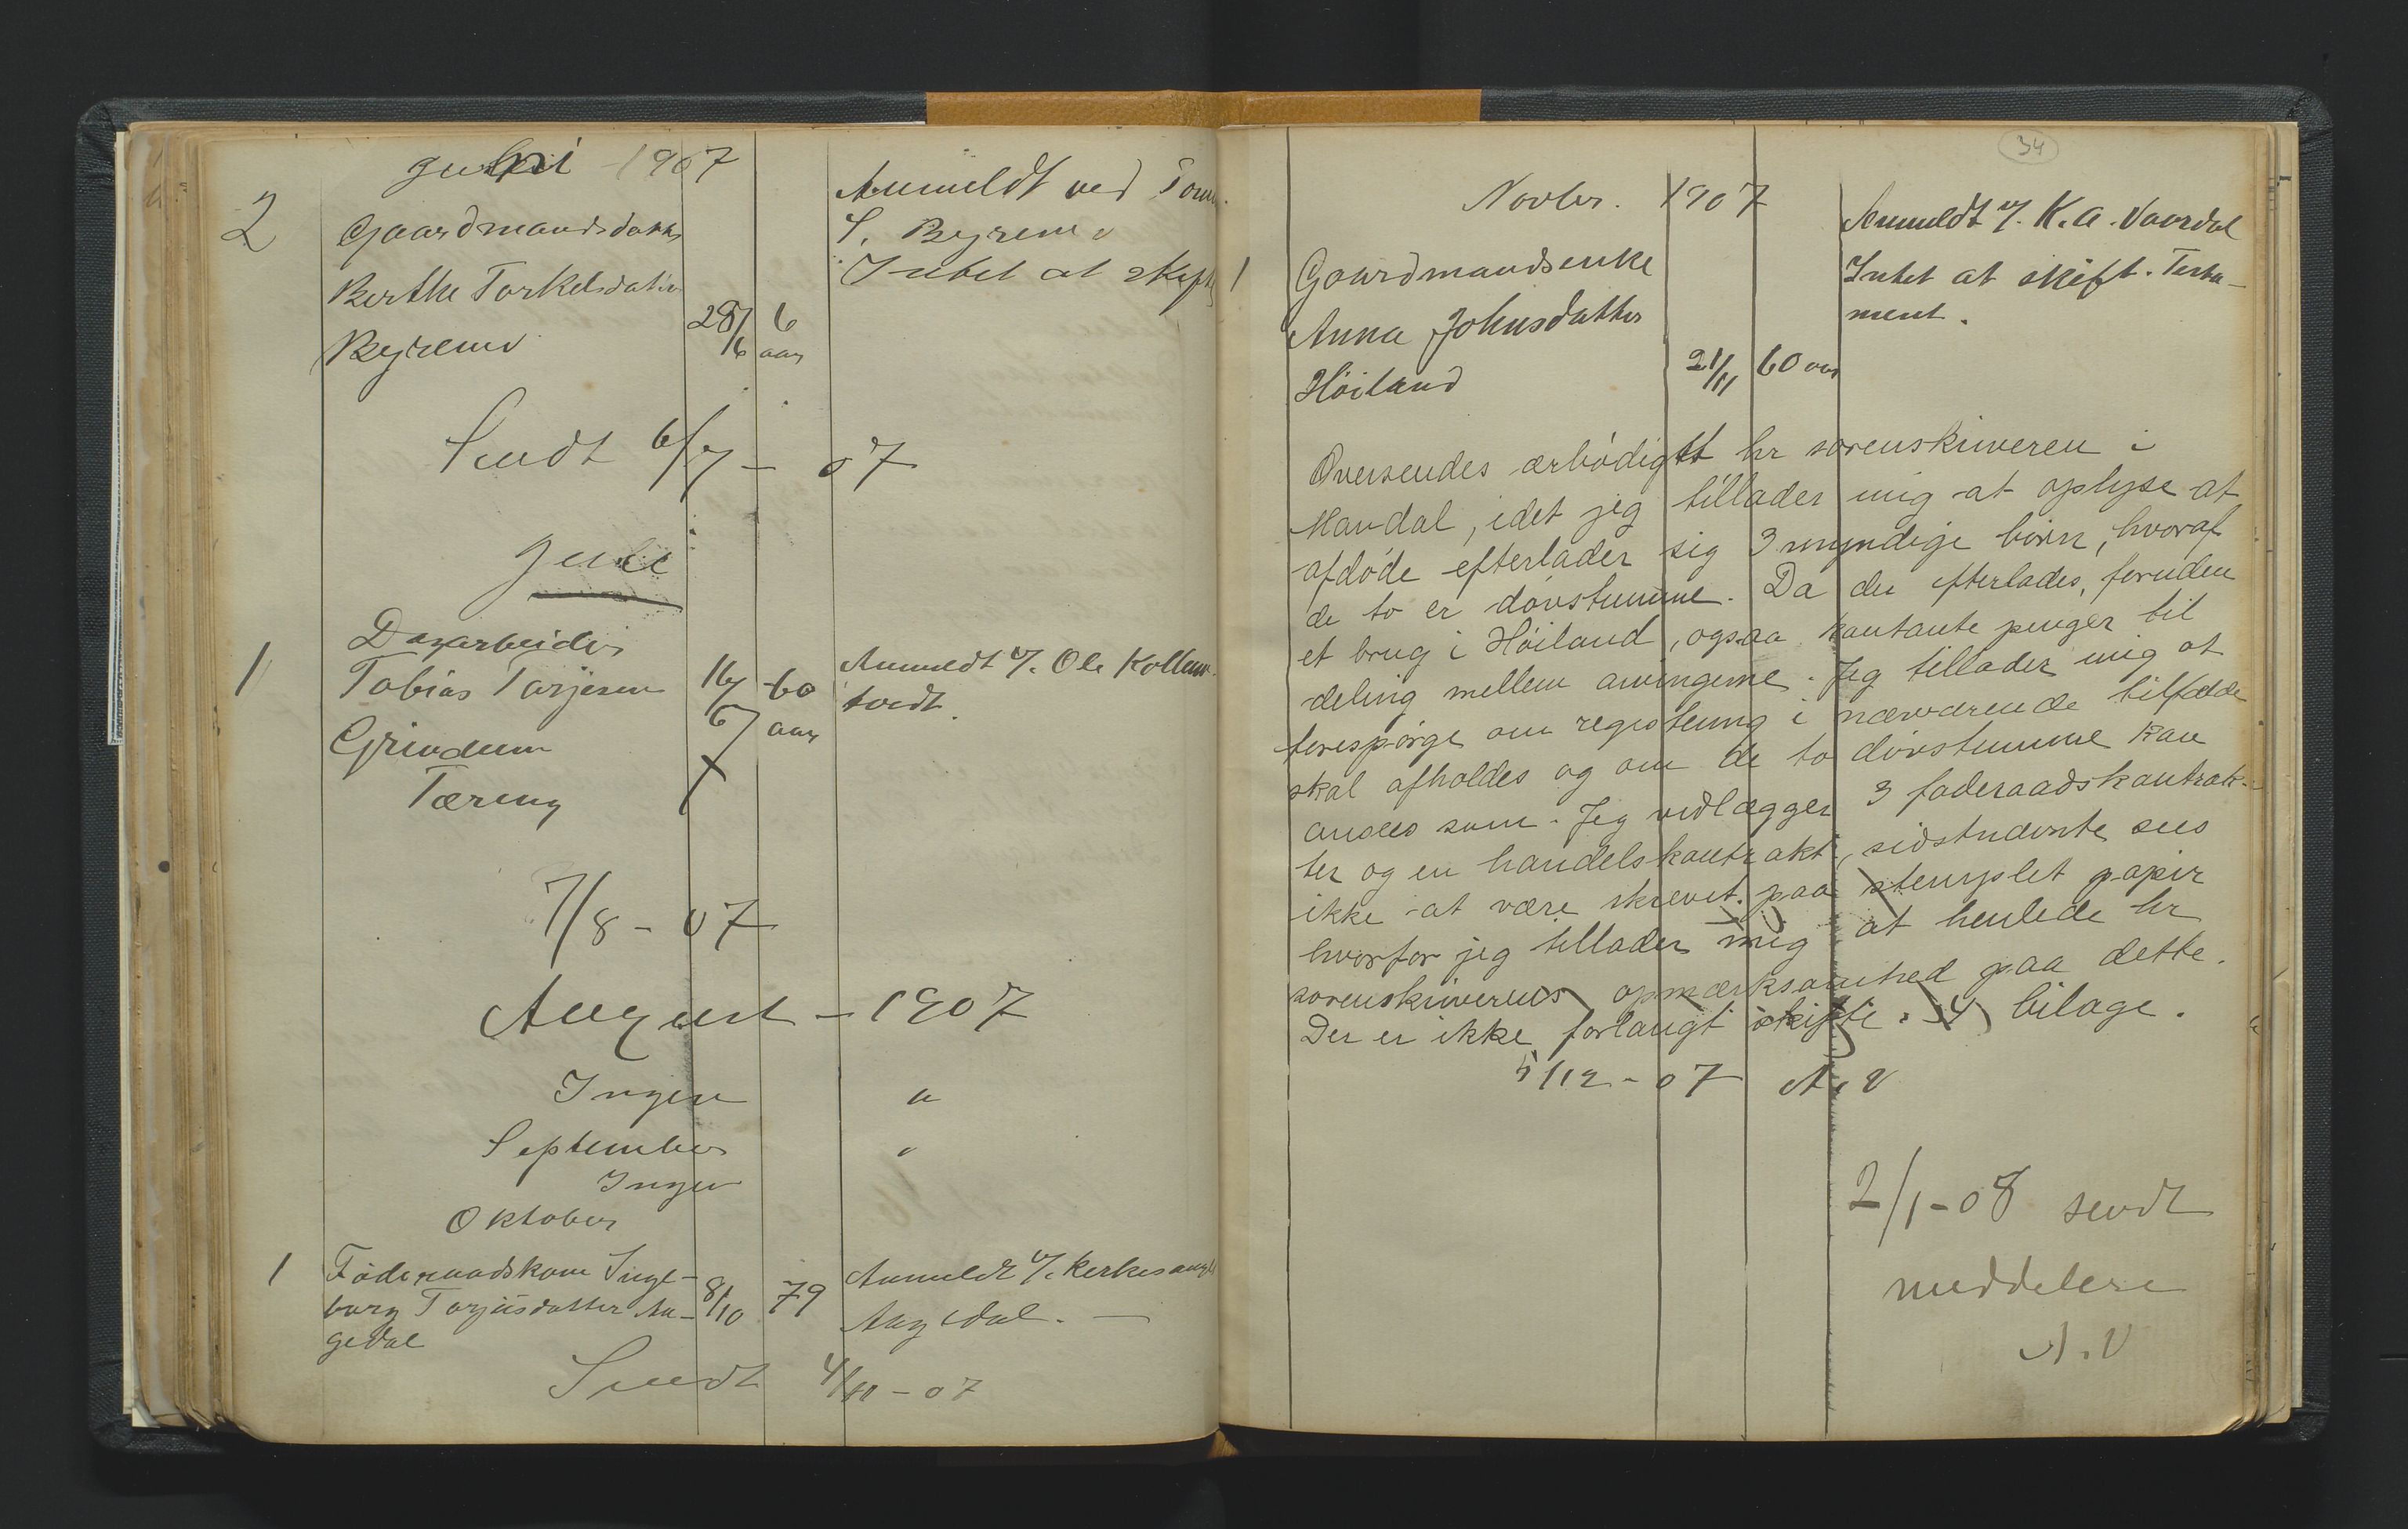 Juni 1907
2
Gaardmandsdatter
Berthe Torkelsdatter
Byremo
28/6
6 aar
Anmeldt ved Tom.
S. Byremo
Intet at skifte
Sendt 6/7 - 07
Juli
1
Dagarbeider
Tobias Tarjesen
Grindem
Tæring
16/
6/
60 aar
Anmeldt v/. Ole Kollem-
tvedt
7/8 - 07
August - 1907
Ingen "
September "
Ingen
Oktober
1
Föderaadskone Inge-
borg Tarjesdatter Au-
gedal
8/10
79
Anmeldt v/. Kirkesanger
Aagedal. —
Sendt 4/10 - 07
34
Novbr. 1907
1
Gaardmandsenke
Anna Johnsdatter
Höiland
21/11
60 aar
Anmeldt v/. K. A. Vaardal
Intet at skift. Testa-
ment.
Oversendes ærbödigst hr sorenskriveren i
Mandal, idet jeg tillader mig at oplyse at
afdöde efterlader sig 3 myndige börn, hvoraf
de to er dövstumme. Da der efterlades, foruden
et brug i Höiland, ogsaa kontante penger til
deling mellem arvingerne. Jeg tillader mig at
forespörge om registering i nærværende tilfælde
skal afholdes og om de to dövstumme kan
ansees som. Jeg vedlægger 3 föderaadskontrak-
ter og en handelskontrakt, sidstnævnte sees
ikke at være skrevet paa stemplet papir
hvorfor jeg tillader mig at henlede hr
sorenskriverens opmærksomhed paa dette.
Der er ikke forlangt skifte. 4 bilage.
5/12 - 07 A. V
2/1 - 08 sendt
meddelere
A. V